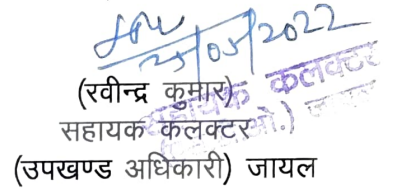 25/05/2022
सहायक कलक्टर
(रवीन्द्र कुमार)
सहायक कलक्टर
(उपखण्ड अधिकारी) जायल